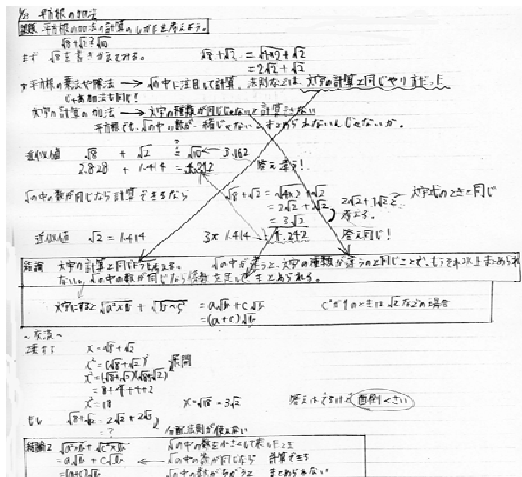 平方根の加法
課題 平方根の加法の計算のしかたを考えよう。
√8+√2=√10
まず √8を書きかえてみる。 √8+√2 = √4×2+√2
= 2√2+√2
平方根の乗法や除法 → √の中に注目して計算。法則などは、文字の計算と同じやり方だった
じゃあ加法も同じ!
文字の計算の加法 → 文字の種類が同じじゃないと計算できない
平方根でも、√の中の数が一緒じゃないとまとめられないんじゃないか。
近似値 √8 + √2 = √10 → 3.162
2.828 + 1.414 = 4.242 答え違う!
√の中の数が同じなら計算できるなら √8+√2 = √4×2+√2
= 2√2+√2
= 3√2
2√2+1√2を 文字式のときと同じ
考える。
近似値 √2=1.414 3×1.414=4.242 答え同じ!
結論 文字の計算と同じように考える。 √の中が違うと、文字の種類が違うのと同じことで、もうそれ以上まとめられ
ない。√の中の数が同じなら係数を足してまとめられる。
文字にすると √a²×b + √b×c² = a√b + c√b
= (a+c)√b
〜交流〜
x=√8+√2
x²=(√8+√2)² 展開
x²=(√8+√2)(√8+√2)
=8+4+4+2
x²=18 x=√18=3√2 答えはでるけど 面倒くさい
√8+√2=2√2+2√2
分配法則が使えない
結論2 √a²×b+√c²×b √の中の数を小さくして表したとき
=a√b+c√b ← √の中の数が同じなら 計算できる
=(a+c)√b √の中の数がちがうと まとめられない